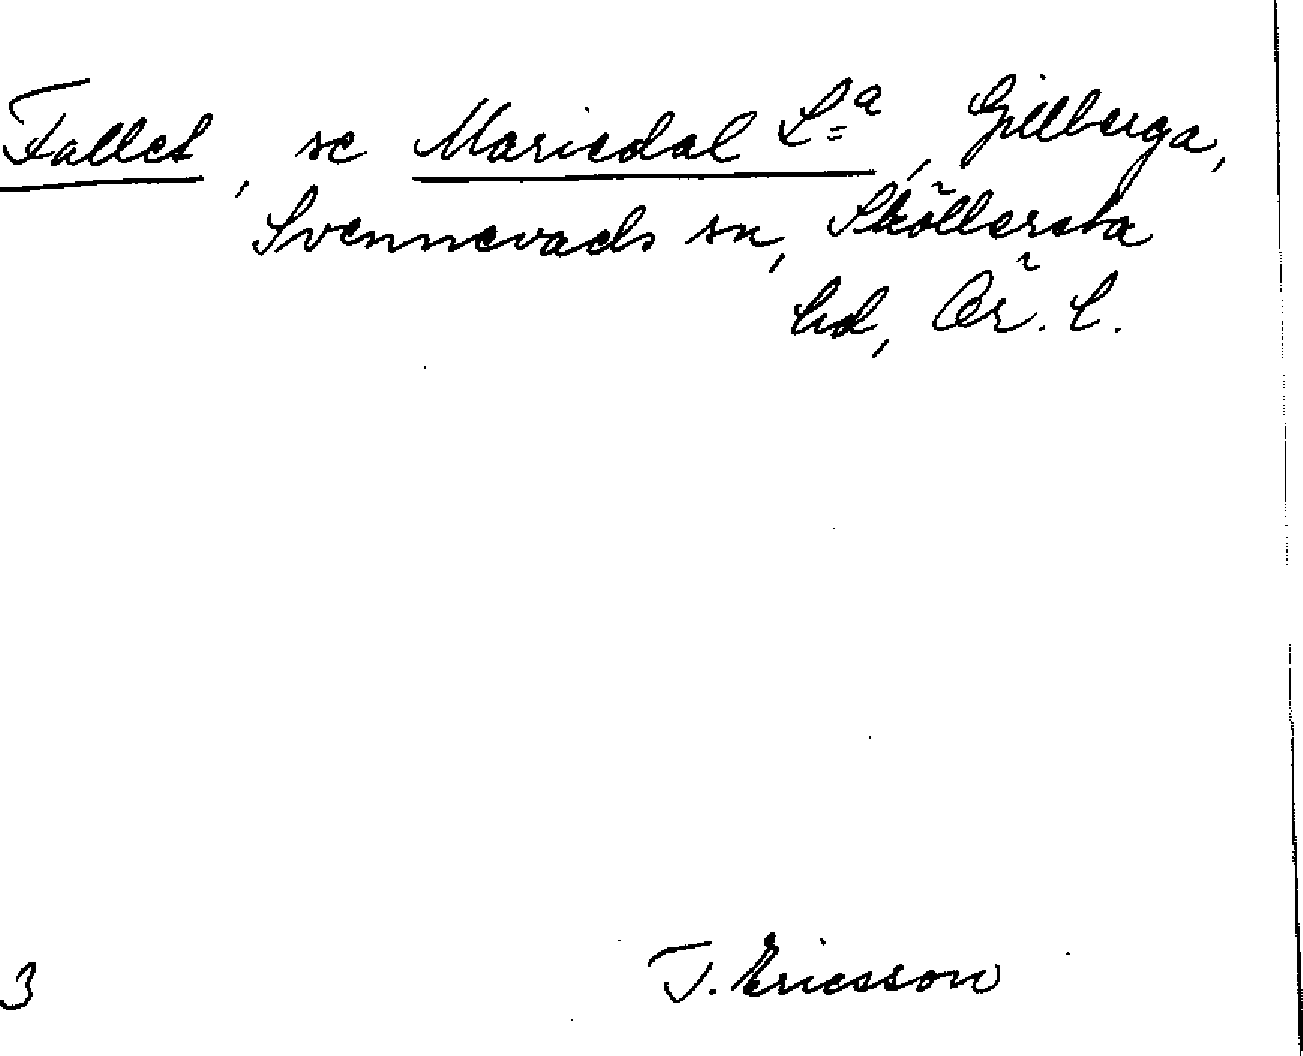 Fallet, se Mariedal Lª, Gillberga,
Svennevads sn, Sköllersta
hd, Ör. l.
3 T. Ericsson